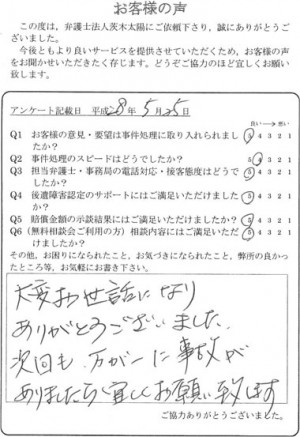 お客様の声
この度は、弁護士法人茨木太陽にご依頼下さり，誠にありがとうご
ざいました。
今後ともより良いサービスを提供させていただくため、お客様の声
をお聞かせいただきたく存じます。どうぞご協力のほど宜しくお願い
致します。
アンケート記載日 平成28年5月25日
良い ← → 悪い
Q1 お客様の意見・要望は事件処理に取り入れられまし
たか？ 5 4 3 2 1
Q2 事件処理のスピードはどうでしたか？ 5 4 3 2 1
Q3 担当弁護士・事務局の電話対応・接客態度はどうで
したか？ 5 4 3 2 1
Q4 後遺障害認定のサポートにはご満足いただけました
か？ 5 4 3 2 1
Q5 賠償金額の示談結果にはご満足いただけましたか？ 5 4 3 2 1
Q6 (無料相談会ご利用の方）相談内容にはご満足いただ
けましたか？ 5 4 3 2 1
その他，お困りになられたこと、お気づきになられたこと、弊所の良かっ
たところ等，お気軽にお書き下さい。
大変お世話になり
ありがとうございました。
次回も 万が一に事故が
ありましたら宜しくお願い致します
ご協力ありがとうございました。